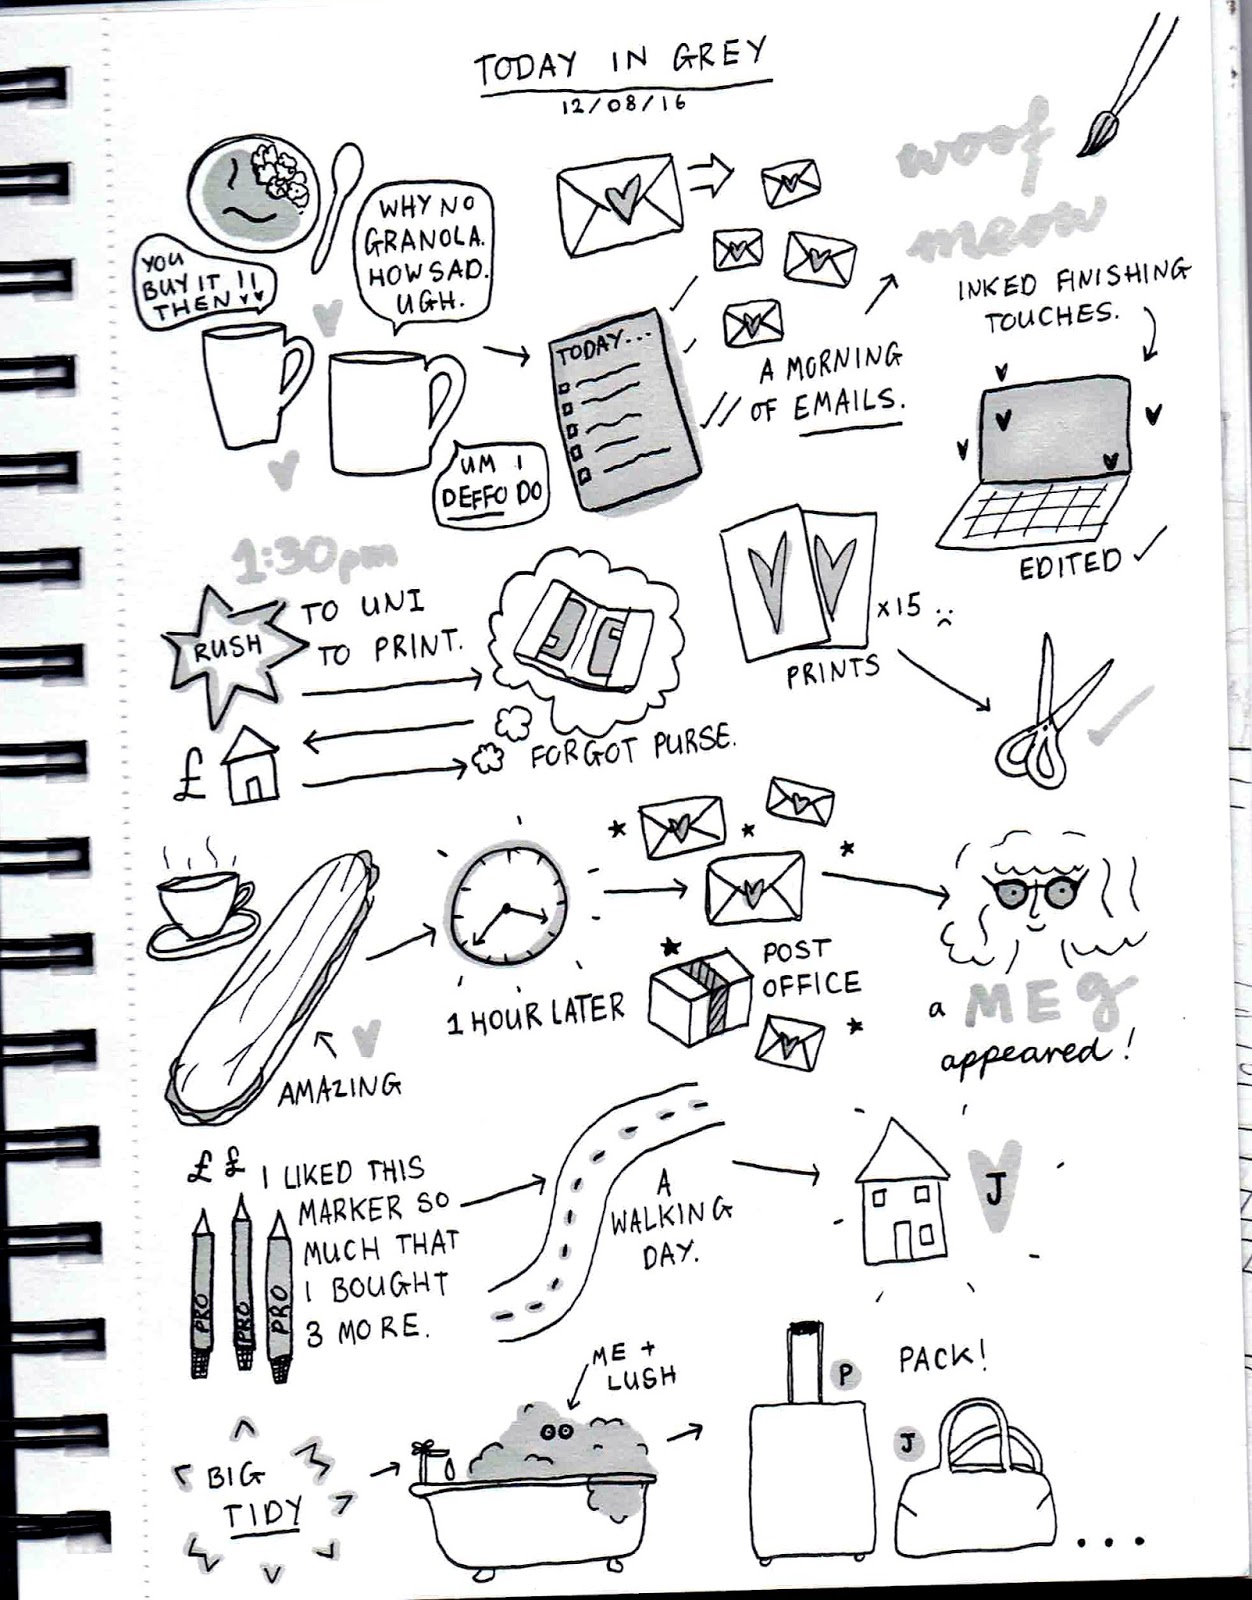 TODAY IN GREY
12/08/16
YOU
BUY IT
THEN !!
WHY NO
GRANOLA.
HOW SAD.
UGH.
UM I
DEFFO DO
TODAY...
A MORNING
OF EMAILS.
woof
meow
INKED FINISHING
TOUCHES.
EDITED
1:30pm
RUSH
TO UNI
TO PRINT.
£
FORGOT PURSE.
x15 :(
PRINTS
AMAZING
1 HOUR LATER
POST
OFFICE
a MEg
appeared!
£ £
I LIKED THIS
MARKER SO
MUCH THAT
I BOUGHT
3 MORE.
PRO
PRO
PRO
A
WALKING
DAY.
J
BIG
TIDY
ME +
LUSH
P
PACK!
J
...